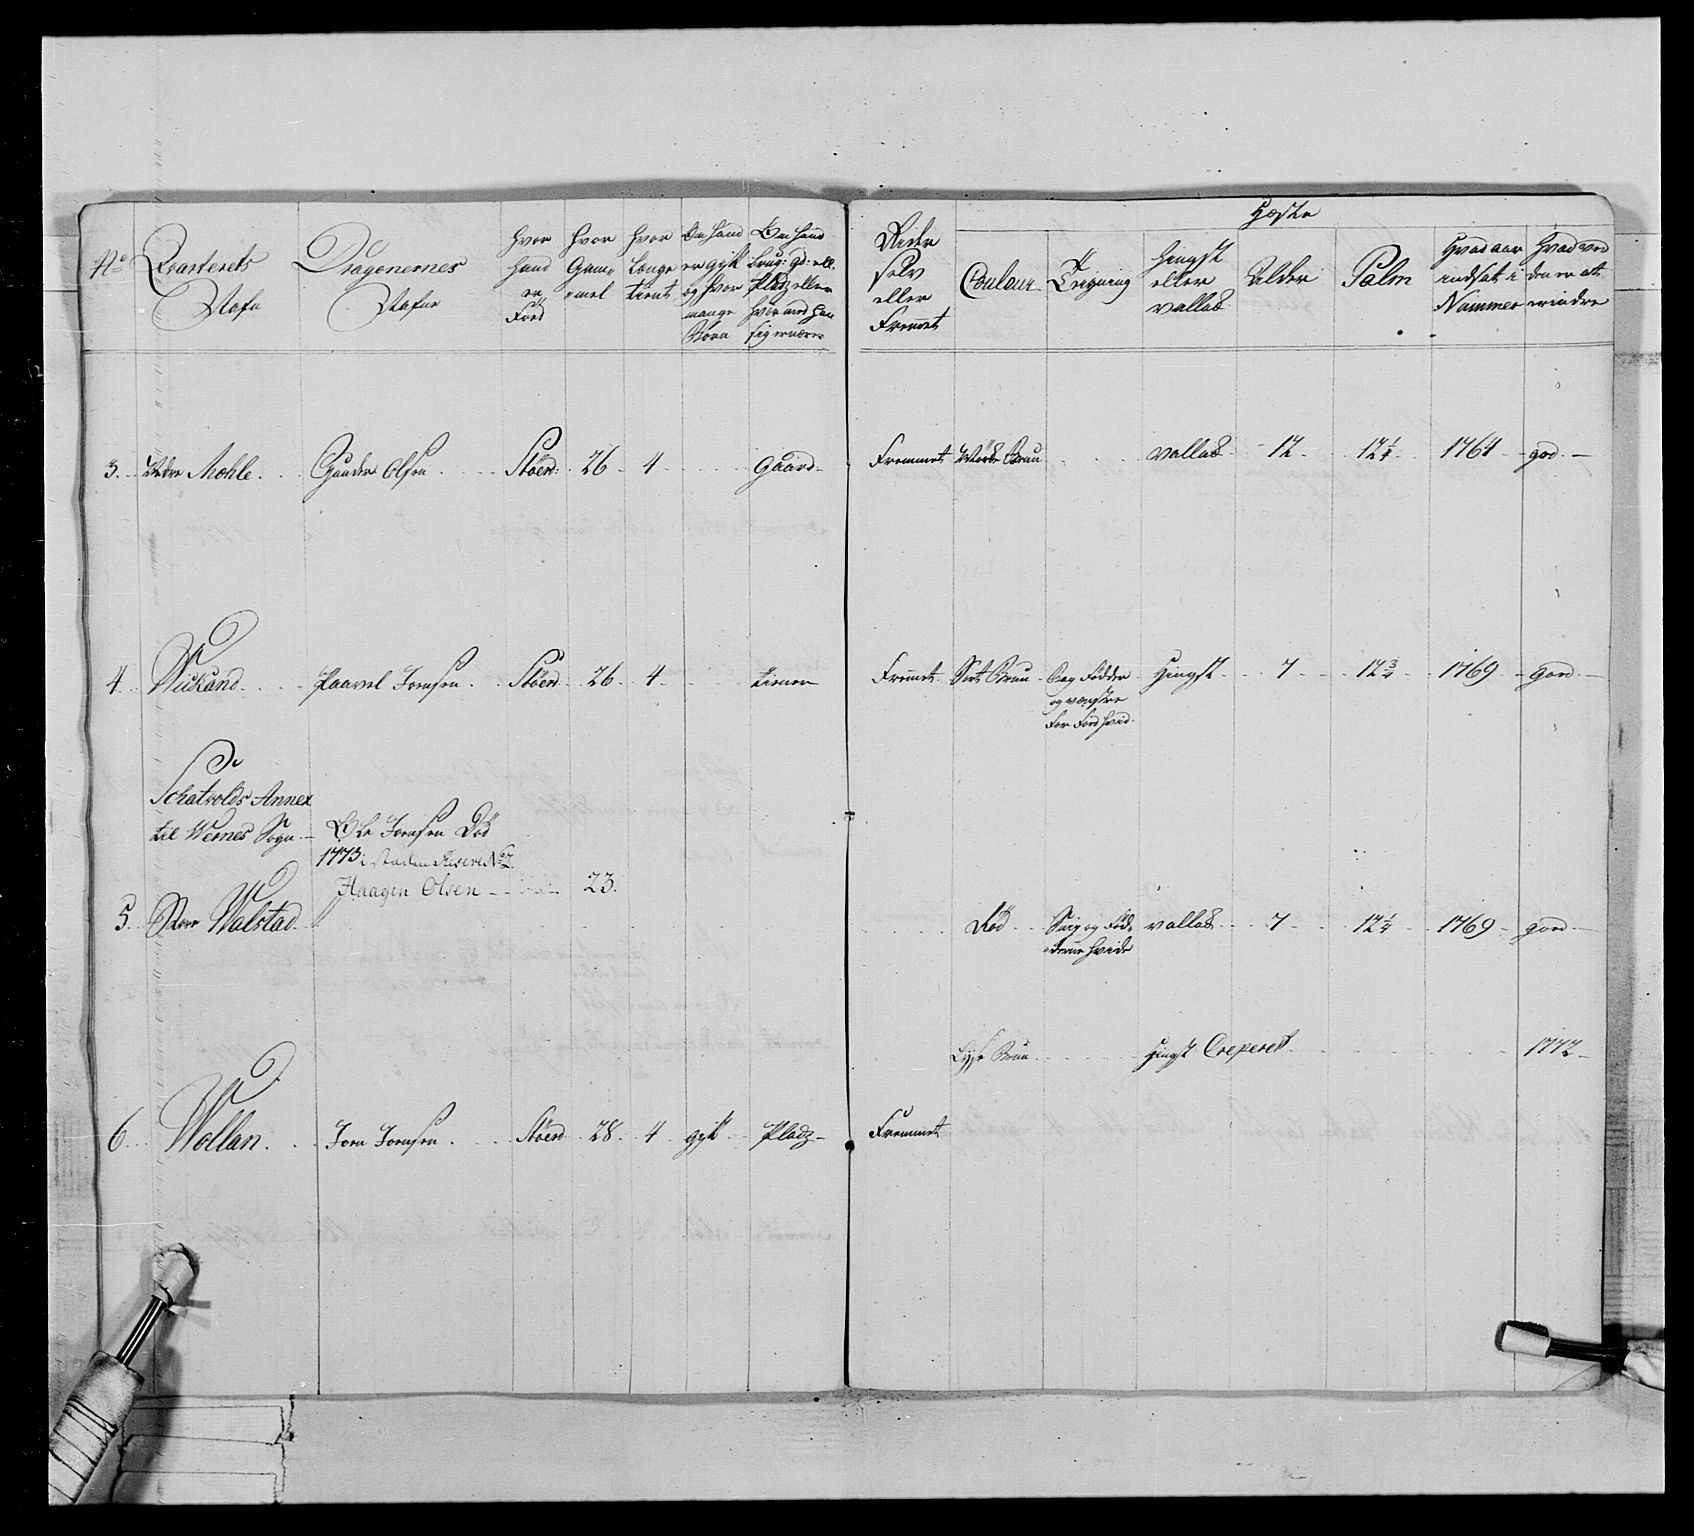 No Qvarterets Nafn
Dragonernes Nafne
Hvor hand er Föd
Hvor Gam„mel
Hvor Længe tient
Om hand er gift og hvor mange Börn
Om hand brug: gd: ell. Plads eller hvor med han sig ernærer
Ride selv eller Fremmet
Hæste
Couleur
Tegning
Hingst eller vallak
Alder
Palm
Hvad aar indsat i Nummer
Hvad ved den er at erindre
3. Nedre Mohle. Gunder Olsen. Stöer: 26 4 Gaard Fremmet Mörk Brun vallak 12 12 1/4 1764 god.
4. Wickand. Paavel Jonsen. Stöer 26 4 tiener Fremet Sort Brun Bag Födder og venstre For Fod hvid. Hingst 7 12 3/4 1769 god.
Schatvolds Annex
til Wernes Sogn
Ole Jonsen Död
1773 i steden Reserve No 2
Haagen Olsen 23.
5. Store Walstad. Röd Snip og Föd„derne hvide vallak 7 12 1/4 1769 god.
Lyse Brun Hingst Creperet 1772
6. Wollan. Jon Jonsen. Stöer 28 4 gift Plads Fremmet